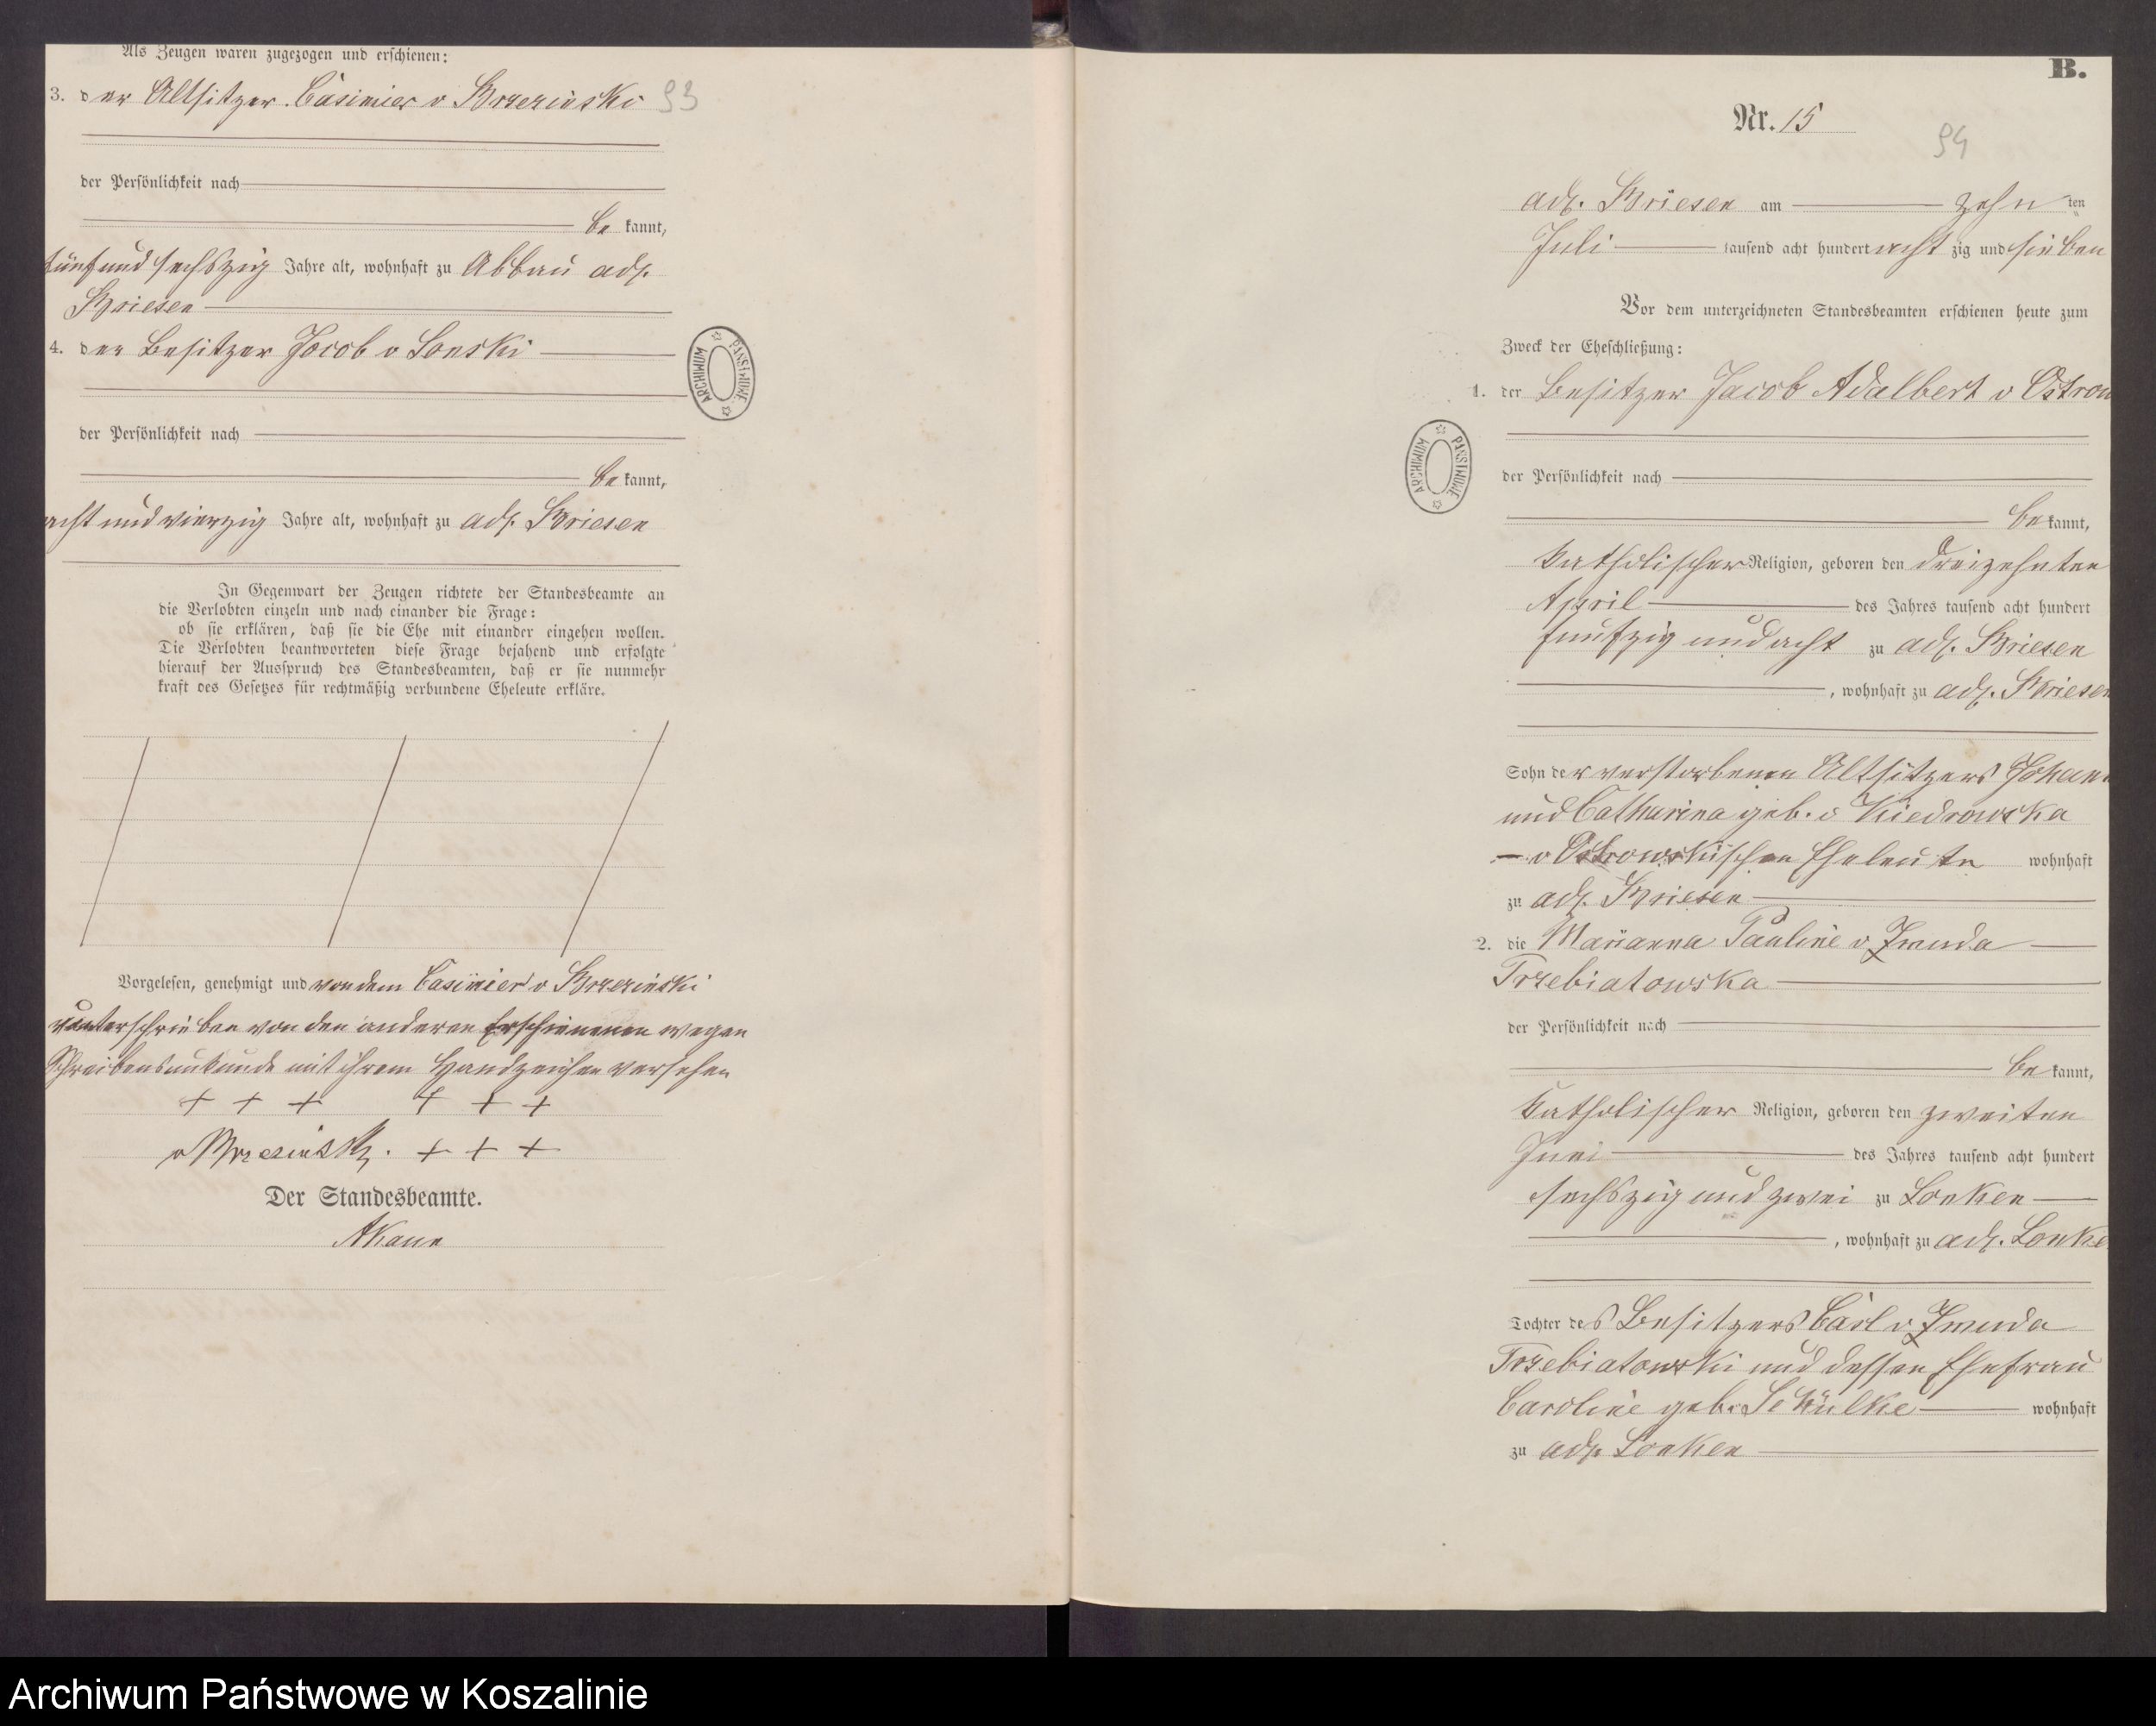 Als Zeugen waren zugezogen und erschienen:
3. der Altsitzer Casimier v Brzezinski 93
der Persönlichkeit nach
be kannt,
fünf und sechszig Jahre alt, wohnhaft zu Abbau adl.
Briesen
4. der Besitzer Jacob v Lonski
der Persönlichkeit nach
be kannt,
acht und vierzig Jahre alt, wohnhaft zu adl. Briesen
ARCHIWUM PAŃSTWOWE
In Gegenwart der Zeugen richtete der Standesbeamte an
die Verlobten einzeln und nach einander die Frage:
ob sie erklären, daß sie die Ehe mit einander eingehen wollen.
Die Verlobten beantworteten diese Frage bejahend und erfolgte
hierauf der Ausspruch des Standesbeamten, daß er sie nunmehr
kraft des Gesetzes für rechtmäßig verbundene Eheleute erkläre.
Vorgelesen, genehmigt und von dem Casimier v Brzezinski
unterschrieben von den anderen Erschienenen wegen
Schreibensunkunde mit ihrem Handzeichen versehen
+ + + + + +
v Brzezinski. + + +
Der Standesbeamte.
B.
Nr. 15
94
adl. Briesen am zehn ten
Juli tausend acht hundert acht zig und sieben
Vor dem unterzeichneten Standesbeamten erschienen heute zum
Zweck der Eheschließung:
1. der Besitzer Jacob Adalbert v Ostrow
ARCHIWUM PAŃSTWOWE
der Persönlichkeit nach
be kannt,
katholischer Religion, geboren den dreizehnten
April des Jahres tausend acht hundert
fünfzig und acht zu adl. Briesen
, wohnhaft zu adl. Briesen
Sohn der verstorbenen Altsitzers Johann
und Catharina geb. v Kiedrowska
- v Ostrowskischen Eheleute wohnhaft
zu adl. Briesen
2. die Marianna Pauline v Zmuda
Trzebiatowska
der Persönlichkeit nach
be kannt,
katholischer Religion, geboren den zweiten
Juni des Jahres tausend acht hundert
sechszig und zwei zu Lonken
, wohnhaft zu adl. Lonke
Tochter des Besitzers Carl v Zmuda
Trzebiatowski und dessen Ehefrau
Caroline geb. Schülke wohnhaft
zu adl. Lonken
Archiwum Państwowe w Koszalinie